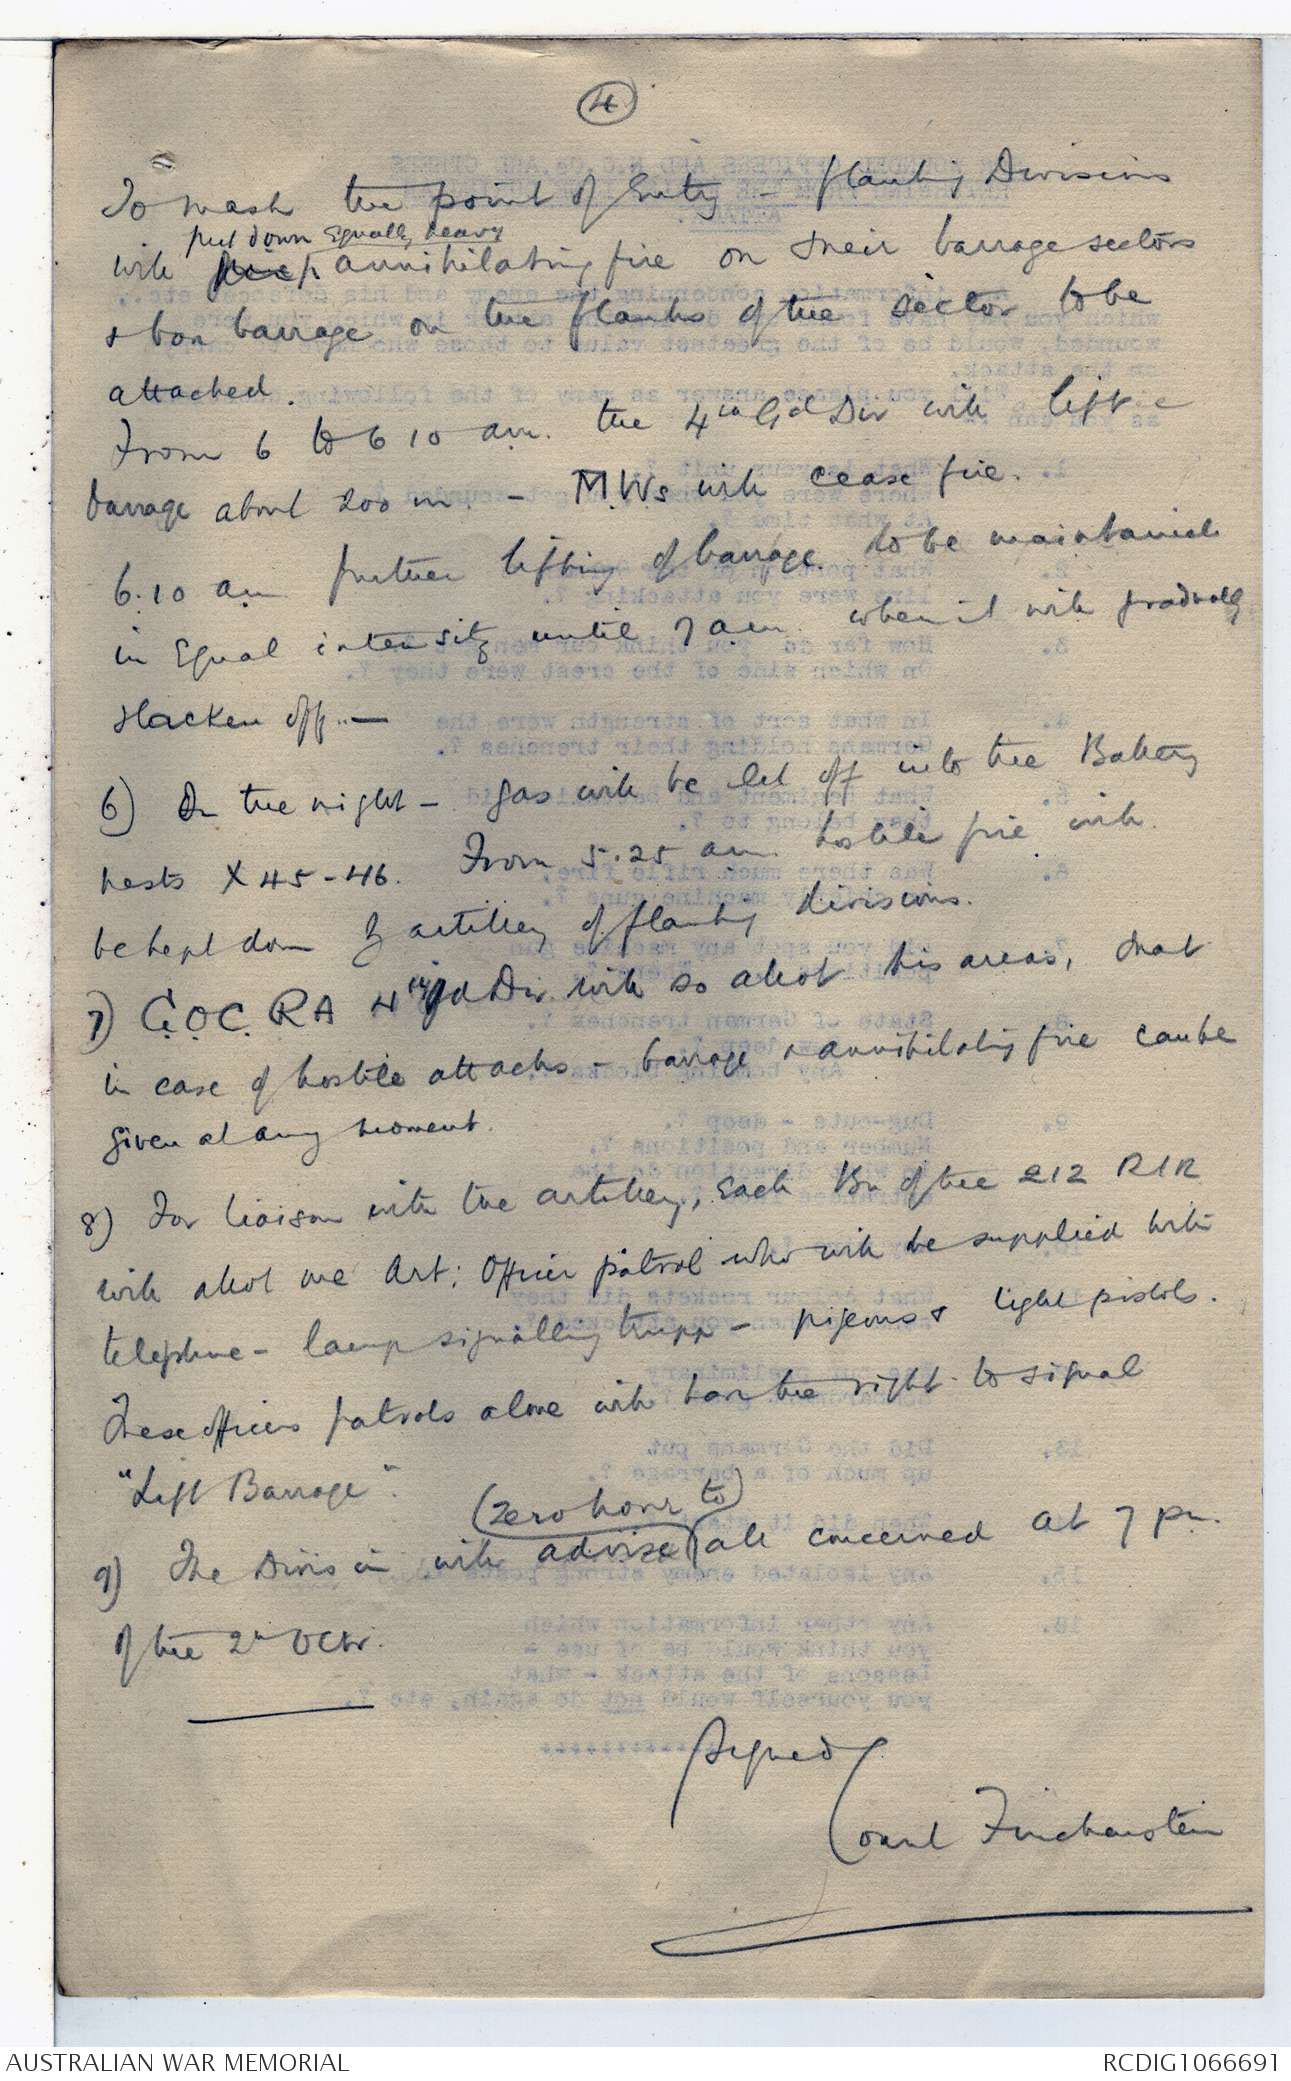 4
To mask the point of Entry – flanking Divisions
put down Equally heavy
will annihilating fire on their barrage sectors
& box barrage on the flanks of the sector to be
attacked.
From 6 to 6 10 am. the 4th Gd Div will lift
barrage about 200 m. – M.W.s will cease fire.
6.10 am further lifting of barrage. to be maintained
in Equal intensity until 7 am. when it will gradually
slacken off. —
6) In the night – gas will be let off into the Battery
nests X 45 - 46. From 5.25 am. hostile fire will
be kept down by artillery of flanking divisions.
7) G.O.C. RA 4th Gd Div. will so allot his areas, that
in case of hostile attacks – barrage & annihilating fire can be
given at any moment.
8) For liaison with the artillery, Each Bn of the 212 RIR
will allot one Art: Officer patrol who will be supplied with
telephone – lamp signalling trupp – pigeons & light pistols.
These officers patrols alone will have the right to signal
"Lift Barrage".
(zero hour to)
9) The Division will advise all concerned at 7 pm.
of the 2nd Octr.
Signed
Count Finckenstein
AUSTRALIAN WAR MEMORIAL
RCDIG1066691